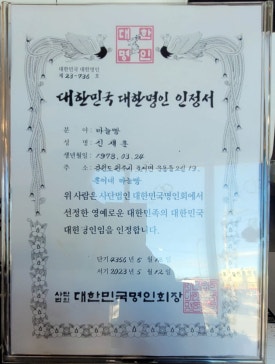 대한
명인
대한민국 대한명인
제 23-736 호
대한민국 대한명인 인정서
분 야 : 마늘빵
성 명 :
생년월일 : 1978. 03. 24
주 소 : 강원도
홍이네 마늘빵
위 사람은 사단법인 대한민국명인회에서
선정한 영예로운 대한민족의 대한민국
대한명인임을 인정합니다.
단기 4356 년 5 월 12 일
서기 2023 년 5 월 12 일
사단법인 대한민국명인회장